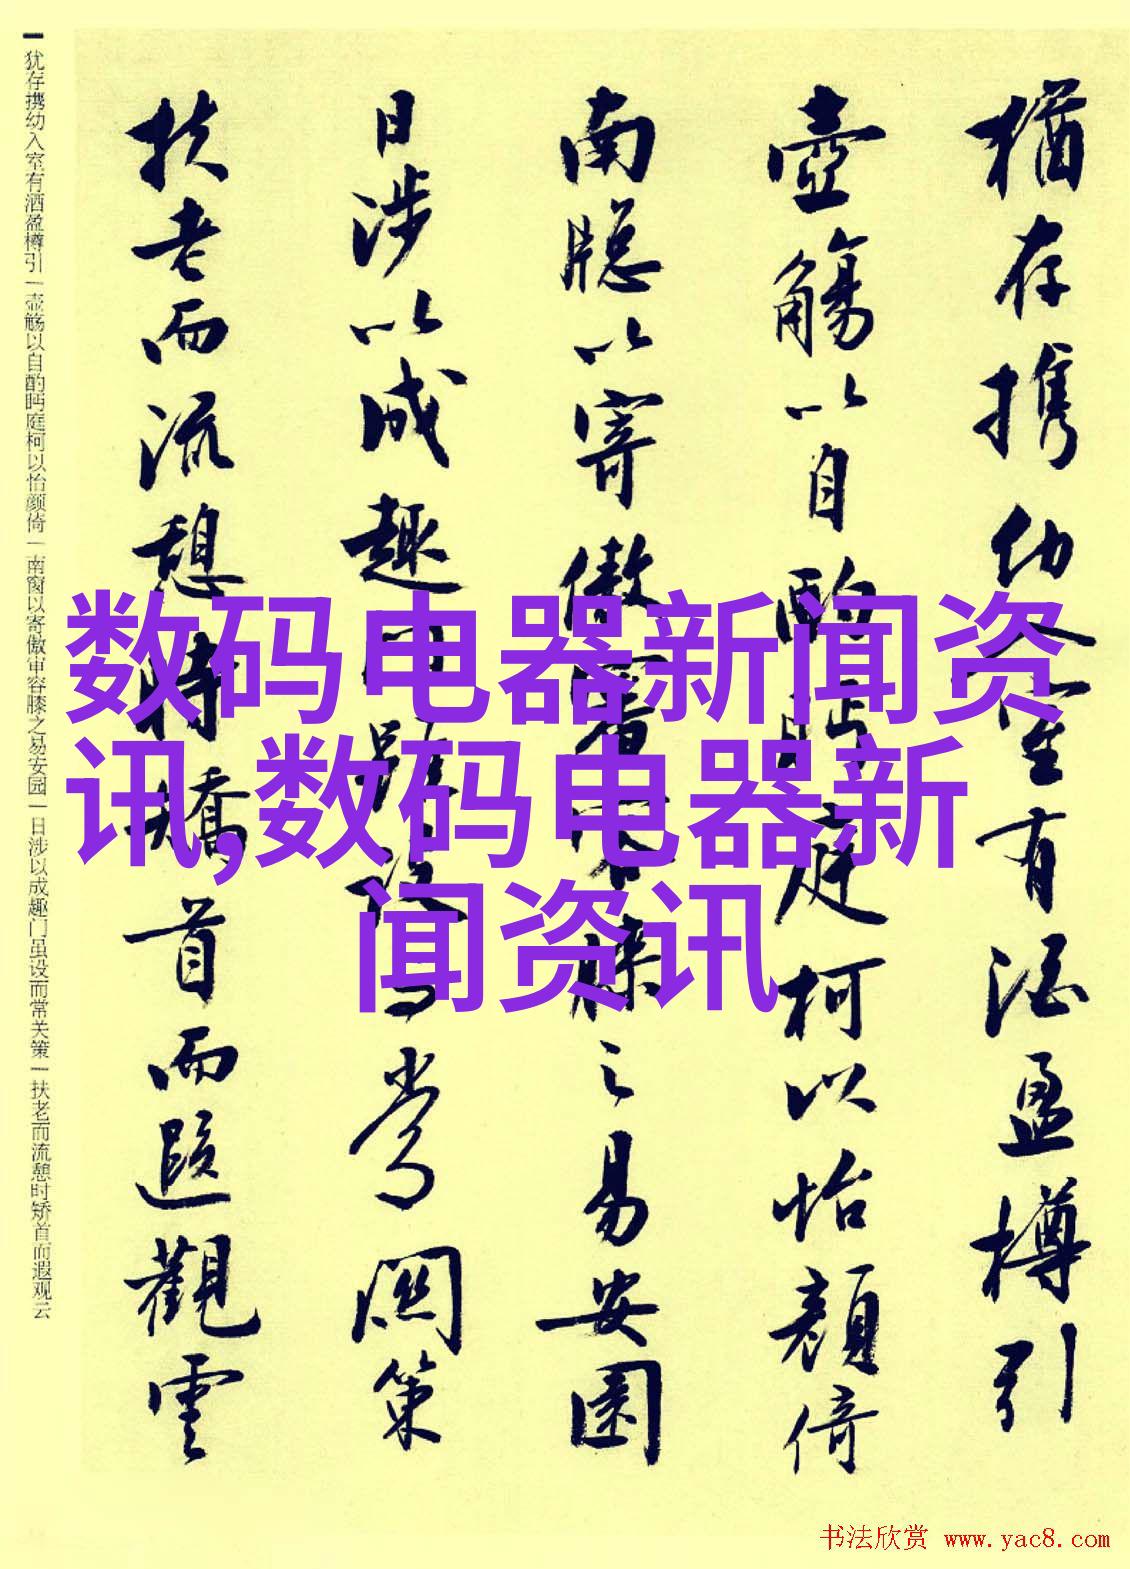 猶存携幼入室有酒盈樽引
壺觴以自酌眄庭柯以怡顏倚
南牕以寄傲審容膝之易安園
日涉以成趣門雖設而常関策
扶老而流憩時矯首而遐觀雲
犹存携幼入室有酒盈樽引|壶觞以自酌眄庭柯以怡颜倚|南窗以寄傲审容膝之易安园|日涉以成趣门虽设而常关策|扶老而流憩时矫首而遐观云
数码电器新闻资
讯,数码电器新
闻资讯
书法欣赏 www.yac8.com